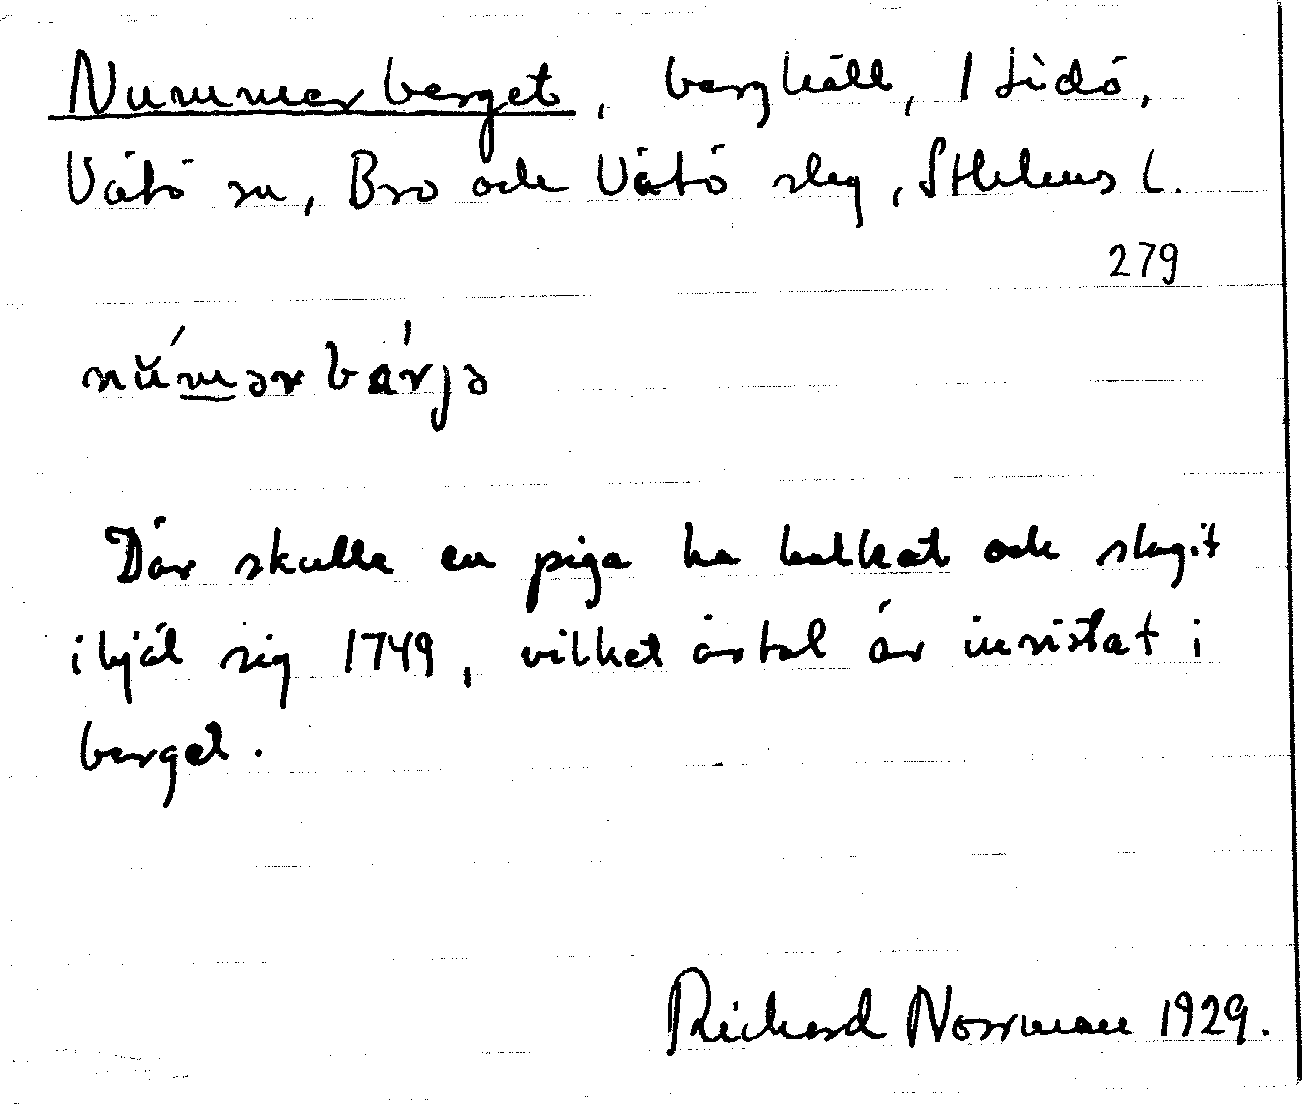 Nummerberget, berghäll, / Lidö,
Vätö sn, Bro och Vätö slg, Sthlms l.
279
nŭ́mərbárjə
Där skulle en piga ha halkat och slagit
ihjäl sig 1749, vilket årtal är inristat i
berget.
Richard Norrman 1929.